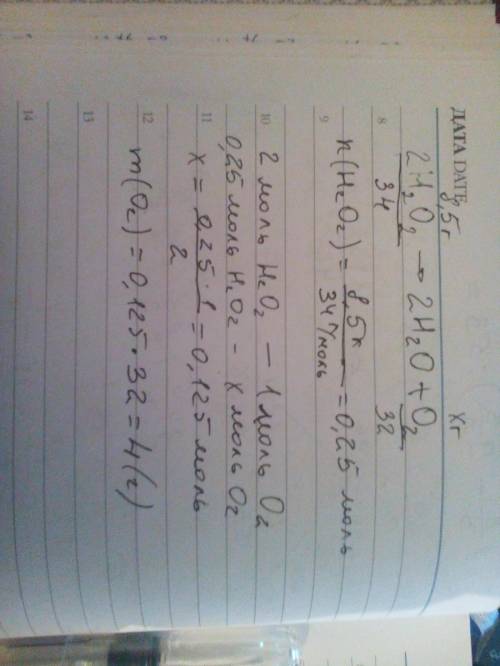 ДАТА DATE 8,5г Хг
2H₂O₂ → 2H₂O + O₂
8 34 32
9 n(H₂O₂) = 8,5г / 34 г/моль = 0,25 моль
10 2 моль H₂O₂ — 1 моль O₂
0,25 моль H₂O₂ – x моль O₂
11 x = 0,25 · 1 / 2 = 0,125 моль
12 m(O₂) = 0,125 · 32 = 4(г)
13
14